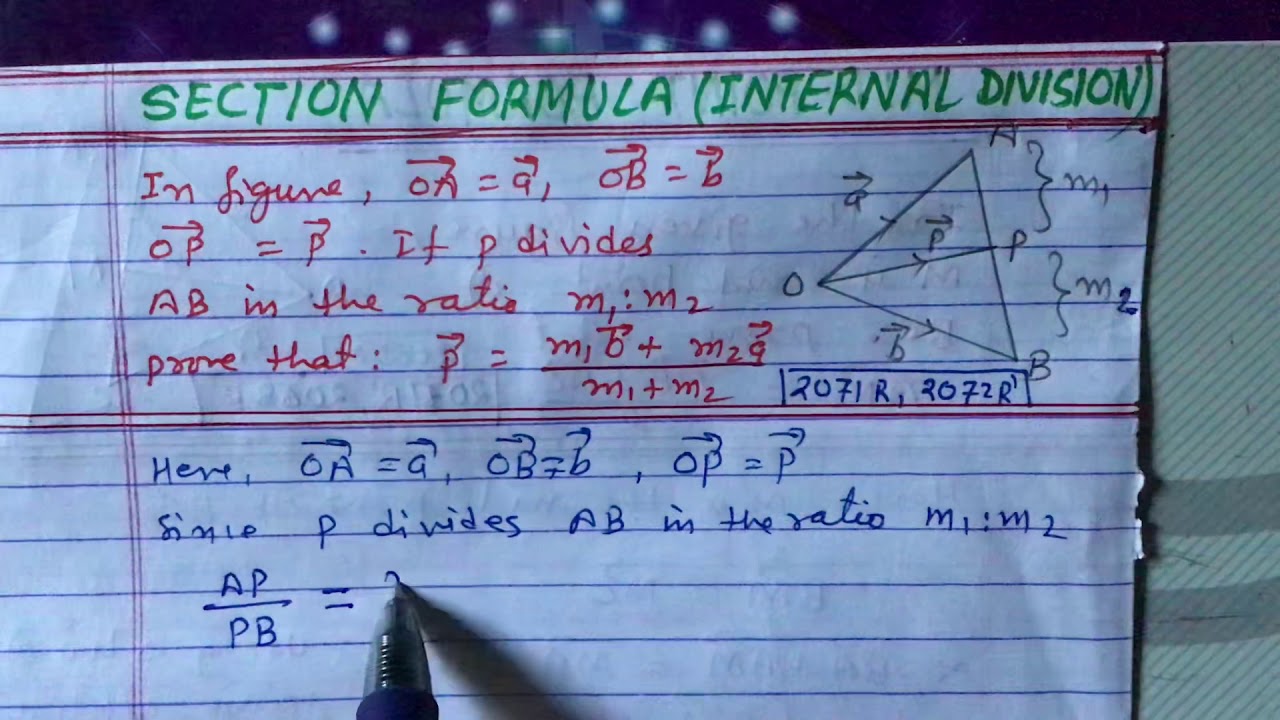 SECTION FORMULA (INTERNAL DIVISION)
In figure, →OA = →a, →OB = →b
→OP = →P. If p divides
AB in the ratio m₁:m₂
prove that: →P = (m₁→b + m₂→a)/(m₁+m₂)
A
m₁
→a
→P
P
O
m₂
→b
B
2071 R, 2072 R'
Here, →OA = →a, →OB = →b, →OP = →P
Since p divides AB in the ratio m₁:m₂
AP/PB =